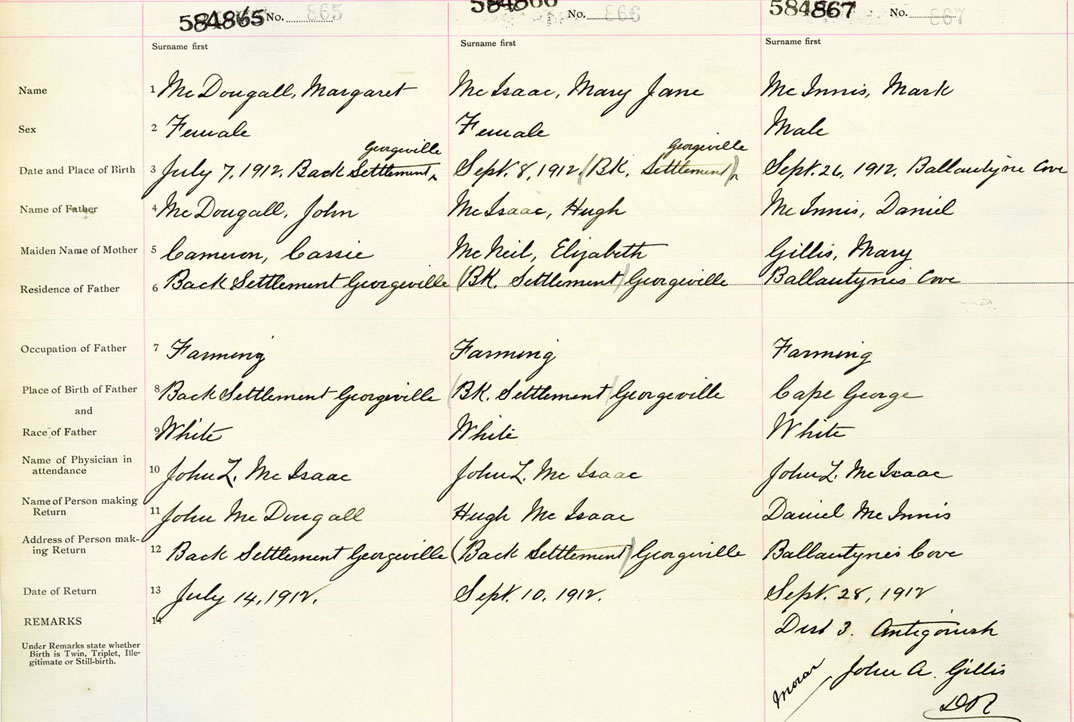 584865 No. 865 584866 No. 866 584867 No. 867
Surname first Surname first Surname first
Name 1 McDougall, Margaret McIsaac, Mary Jane McInnis, Mark
Sex 2 Female Female Male
Georgeville Georgeville
Date and Place of Birth 3 July 7, 1912, Back Settlement Sept. 8, 1912 (BK. Settlement) Sept. 26, 1912, Ballantyne Cove
Name of Father 4 McDougall, John McIsaac, Hugh McInnis, Daniel
Maiden Name of Mother 5 Cameron, Cassie McNeil, Elizabeth Gillis, Mary
Residence of Father 6 Back Settlement Georgeville (BK. Settlement) Georgeville Ballantynes Cove
Occupation of Father 7 Farming Farming Farming
Place of Birth of Father 8 Back Settlement Georgeville (BK. Settlement) Georgeville Cape George
and
Race of Father 9 White White White
Name of Physician in
attendance 10 John L. McIsaac John L. McIsaac John L. McIsaac
Name of Person making
Return 11 John McDougall Hugh McIsaac Daniel McInnis
Address of Person mak-
ing Return 12 Back Settlement Georgeville (Back Settlement) Georgeville Ballantynes Cove
Date of Return 13 July 14, 1912. Sept. 10, 1912. Sept. 28, 1912
REMARKS 14 Dist 3. Antigonish
Under Remarks state whether
Birth is Twin, Triplet, Ille-
gitimate or Still-birth.
Morar John A. Gillis
DR